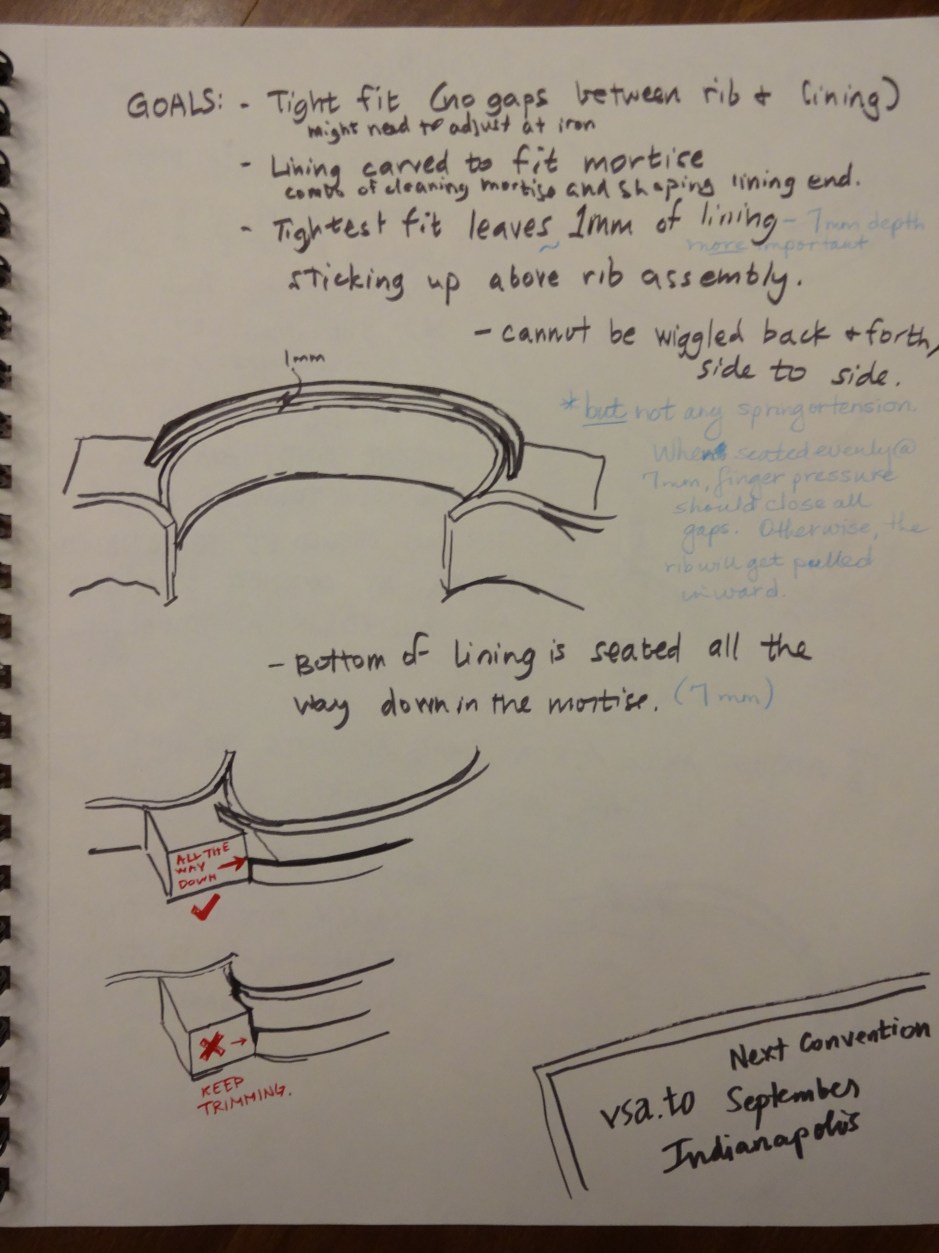 GOALS: - Tight fit (no gaps between rib + lining)
might need to adjust at iron
- Lining carved to fit mortise
combo of cleaning mortise and shaping lining end.
- Tightest fit leaves 1mm of lining - 7mm depth
~ more important
sticking up above rib assembly.
- cannot be wiggled back + forth,
side to side.
1mm
* but not any spring or tension.
When seated evenly @
7mm, finger pressure
should close all
gaps. Otherwise, the
rib will get pulled
inward.
- Bottom of lining is seated all the
way down in the mortise. (7mm)
ALL THE
WAY
DOWN
KEEP
TRIMMING.
Next Convention
vsa.to September
Indianapolis